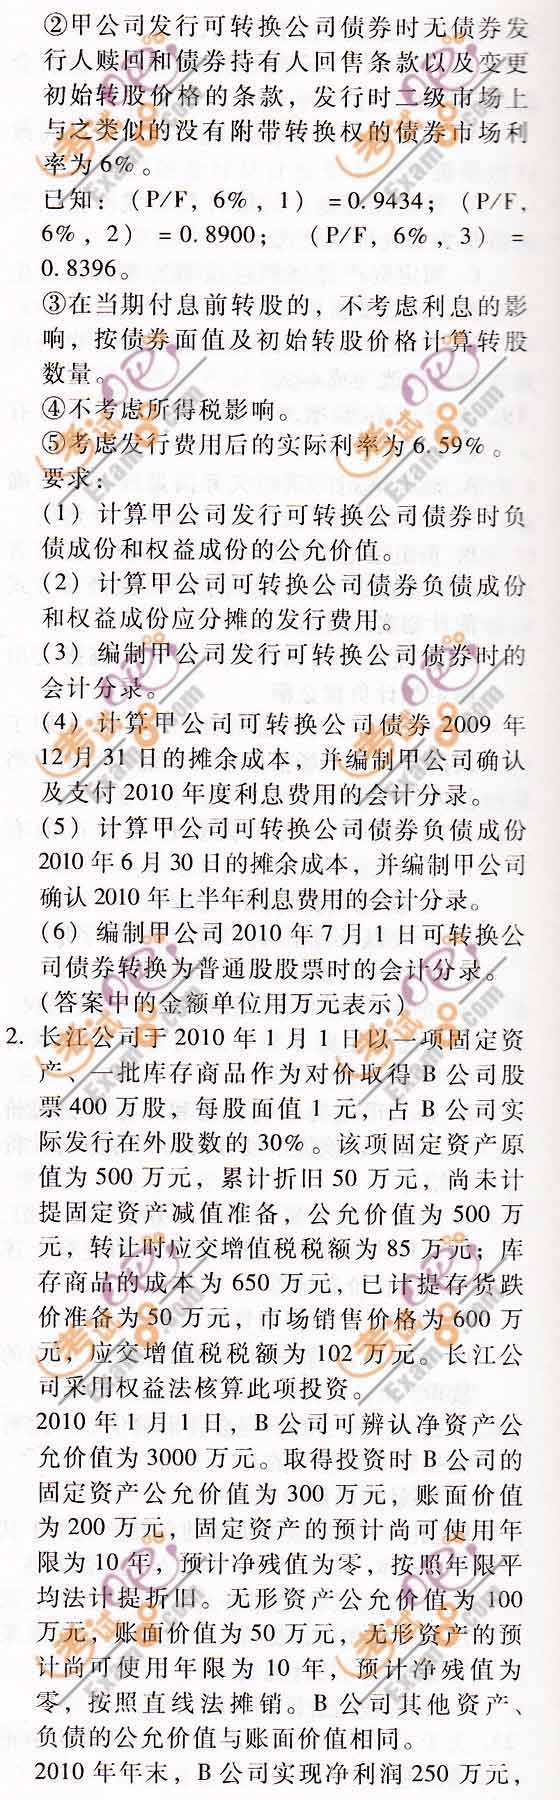 ②甲公司发行可转换公司债券时无债券发
行人赎回和债券持有人回售条款以及变更
初始转股价格的条款，发行时二级市场上
与之类似的没有附带转换权的债券市场利
率为6%。
已知：（P/F，6%，1）=0.9434；（P/F，
6%，2）=0.8900；（P/F，6%，3）=
0.8396。
③在当期付息前转股的，不考虑利息的影
响，按债券面值及初始转股价格计算转股
数量。
④不考虑所得税影响。
⑤考虑发行费用后的实际利率为6.59%。
要求：
（1）计算甲公司发行可转换公司债券时负
债成份和权益成份的公允价值。
（2）计算甲公司可转换公司债券负债成份
和权益成份应分摊的发行费用。
（3）编制甲公司发行可转换公司债券时的
会计分录。
（4）计算甲公司可转换公司债券2009年
12月31日的摊余成本，并编制甲公司确认
及支付2010年度利息费用的会计分录。
（5）计算甲公司可转换公司债券负债成份
2010年6月30日的摊余成本，并编制甲公司
确认2010年上半年利息费用的会计分录。
（6）编制甲公司2010年7月1日可转换公
司债券转换为普通股股票时的会计分录。
（答案中的金额单位用万元表示）
2. 长江公司于2010年1月1日以一项固定资
产、一批库存商品作为对价取得B公司股
票400万股，每股面值1元，占B公司实
际发行在外股数的30%。该项固定资产原
值为500万元，累计折旧50万元，尚未计
提固定资产减值准备，公允价值为500万
元，转让时应交增值税税额为85万元；库
存商品的成本为650万元，已计提存货跌
价准备为50万元，市场销售价格为600万
元，应交增值税税额为102万元。长江公
司采用权益法核算此项投资。
2010年1月1日，B公司可辨认净资产公
允价值为3000万元。取得投资时B公司的
固定资产公允价值为300万元，账面价值
为200万元，固定资产的预计尚可使用年
限为10年，预计净残值为零，按照年限平
均法计提折旧。无形资产公允价值为100
万元，账面价值为50万元，无形资产的预
计尚可使用年限为10年，预计净残值为
零，按照直线法摊销。B公司其他资产、
负债的公允价值与账面价值相同。
2010年年末，B公司实现净利润250万元，